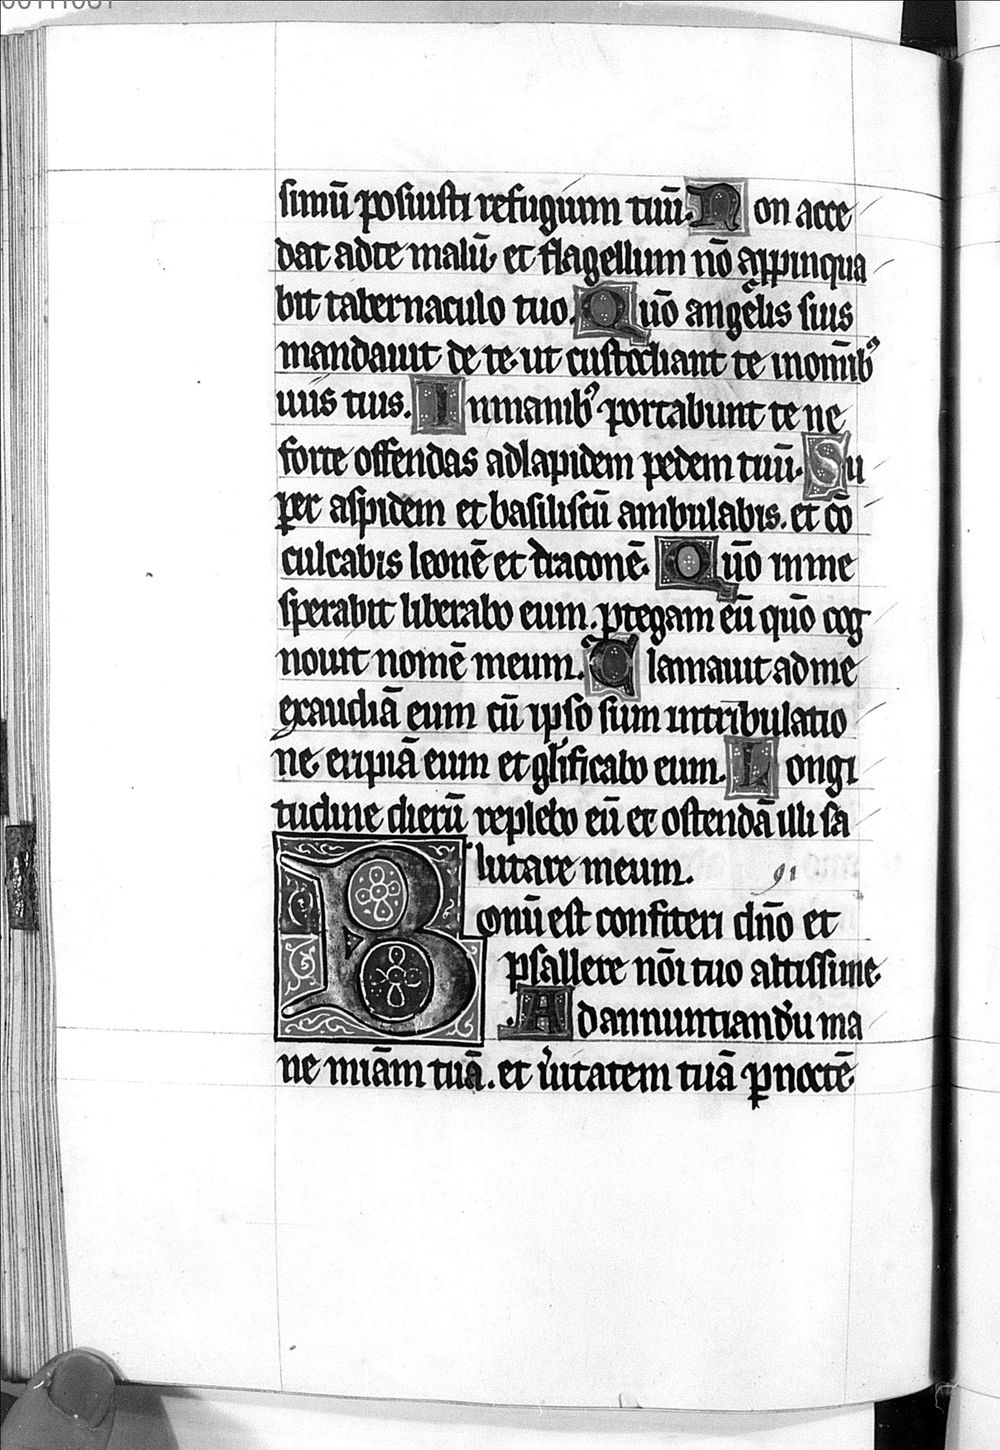 simū posuisti refugium tuū. Non acce
dat ad te malū et flagellum nō appinqua
bit tabernaculo tuo. Quō angelis suis
mandauit de te ut custodiant te in omīb⁹
uiis tuis. In manib⁹ portabunt te ne
forte offendas ad lapidem pedem tuū. Su
per aspidem et basiliscū ambulabis. et cō
culcabis leonē et draconē. Quō in me
sperabit liberabo eum. ꝓtegam eū quō cog
nouit nomē meum. Clamauit ad me
exaudiā eum cū ipso sum in tribulatio
ne eripiā eum et glificabo eum. Longi
tudine dierū replebo eū et ostendā illi sa
lutare meum. 91
Bonū est confiteri dn̄o et
psallere nōi tuo altissime.
Ad annuntiandū ma
ne miām tuā. et ueritatem tuā ꝑ noctē